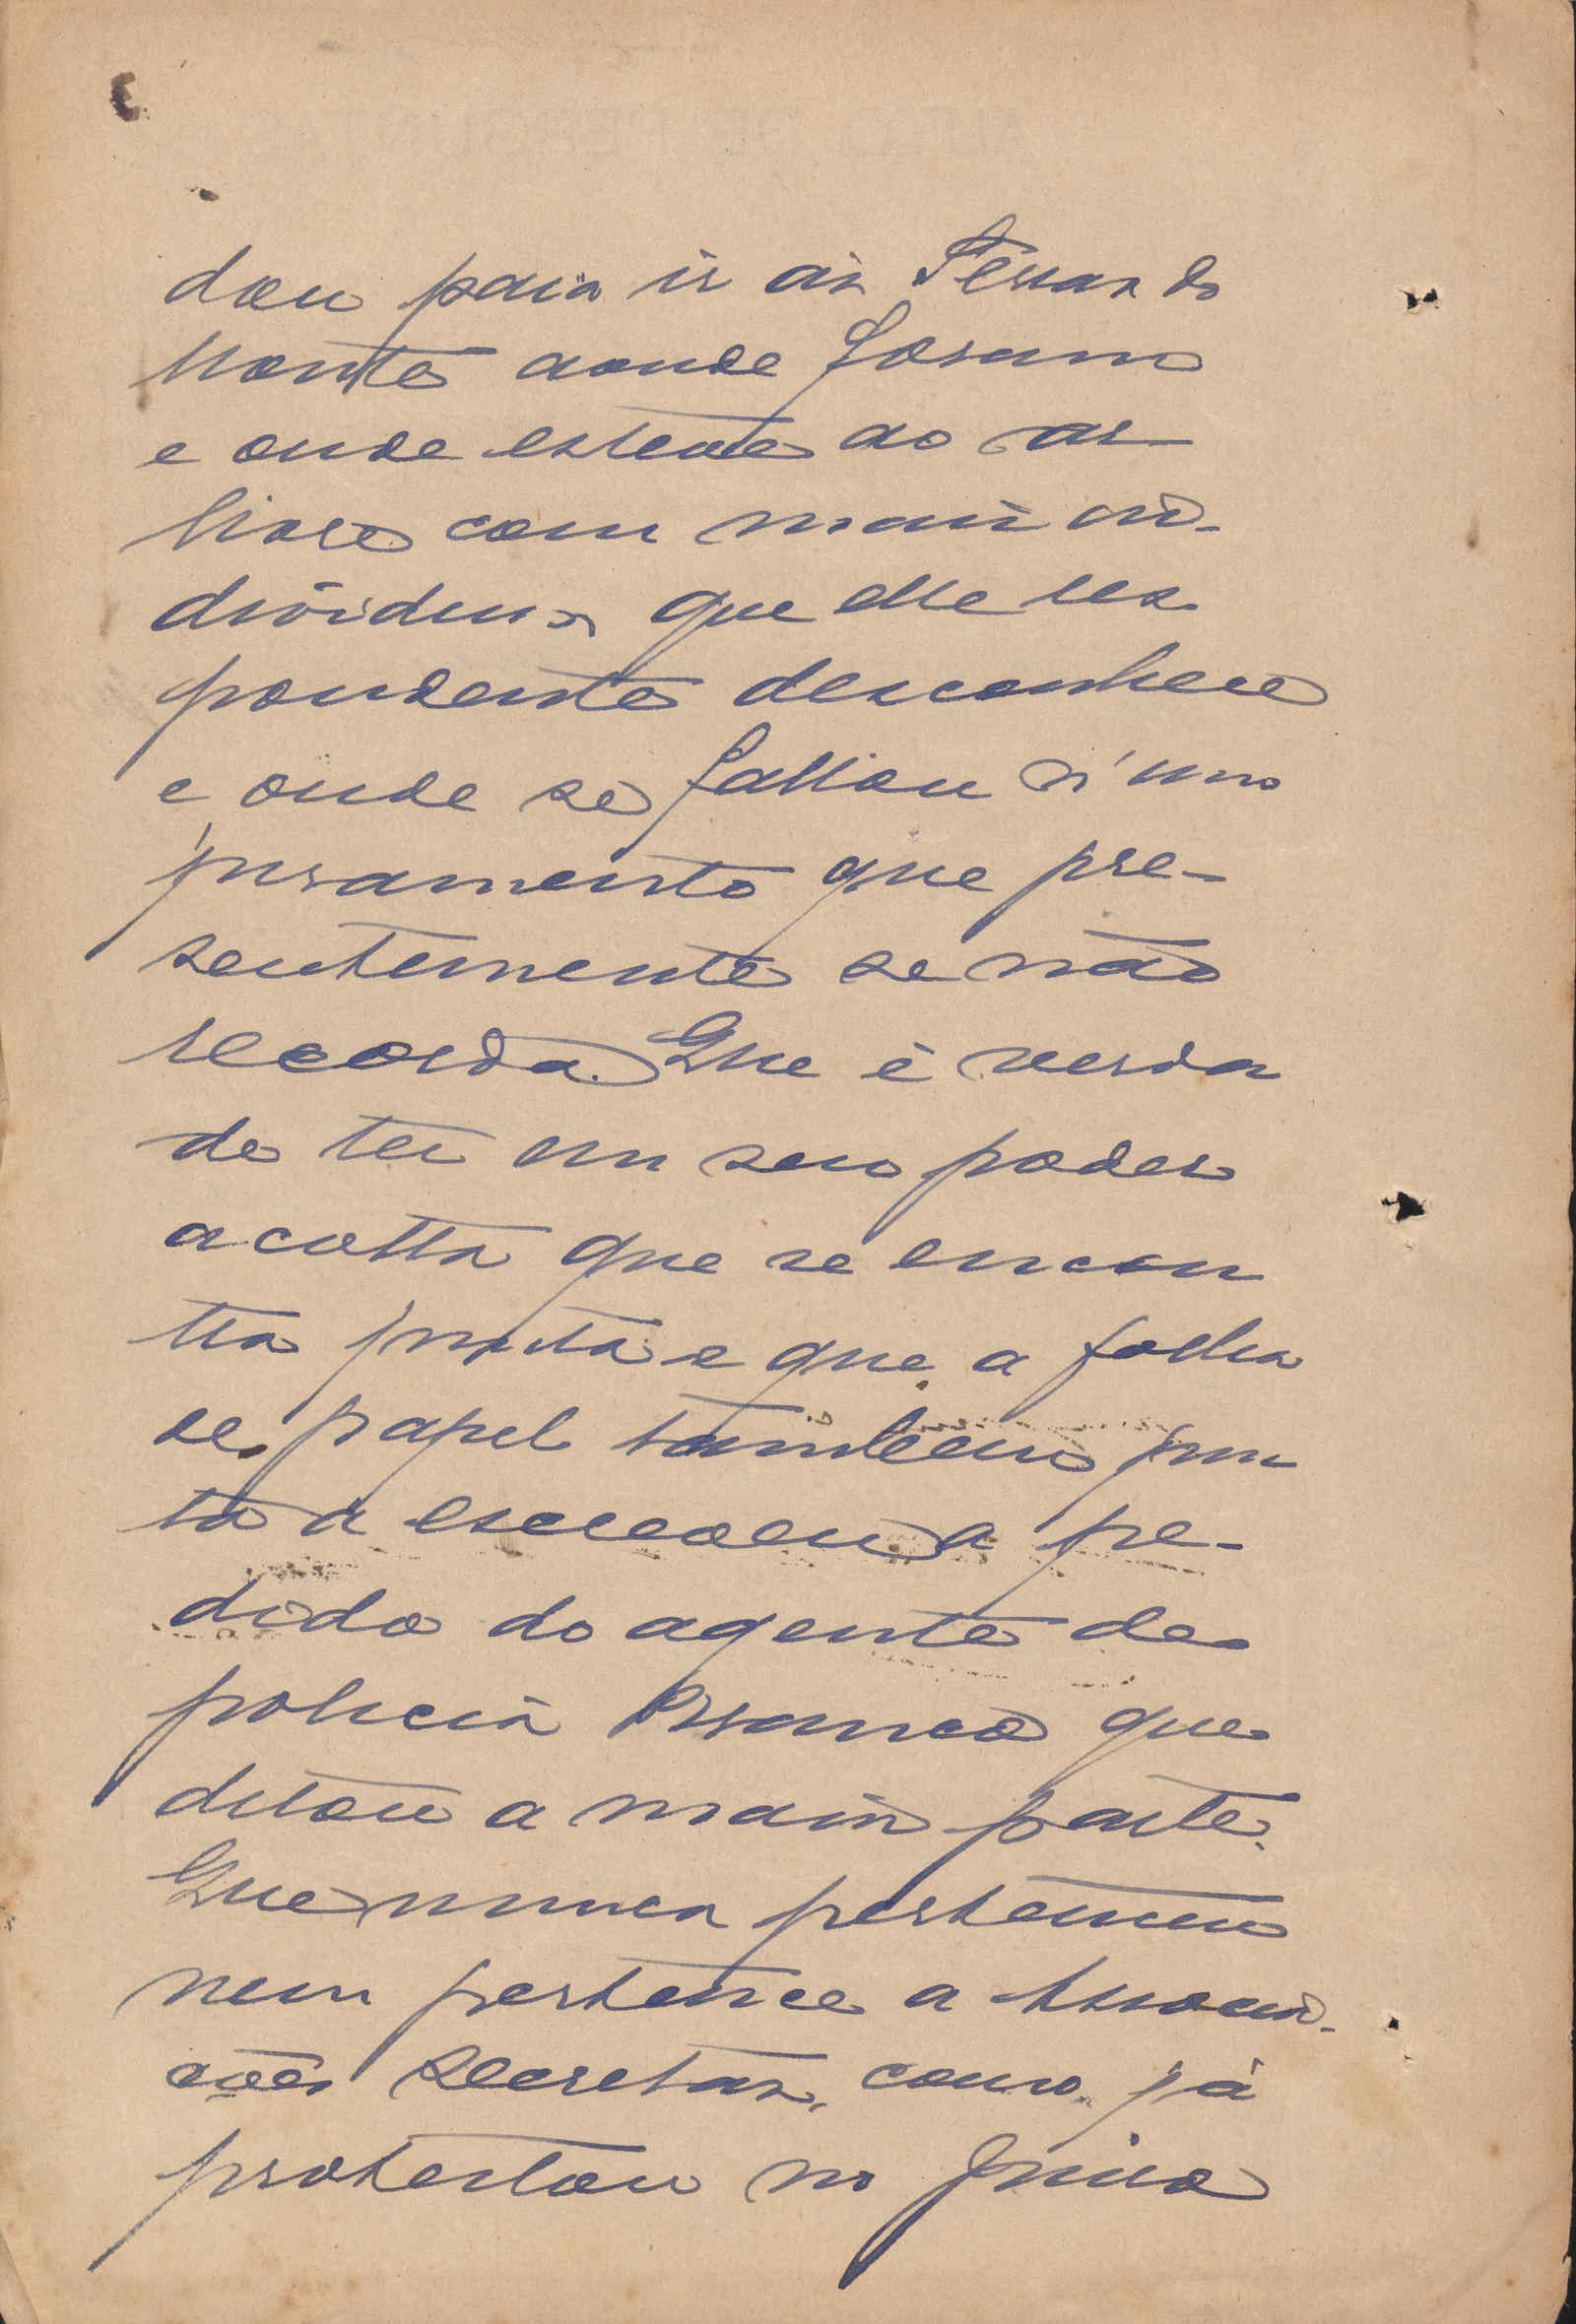 dou para ir ás Terras do
Monte aonde foram
e onde esteve ao ar
livre com mais in-
dividuos que elle res
pondente desconhece
e onde se fallou n'um
juramento que pre-
sentemente se não
recorda. Que é verda
de ter em seu poder
a cotta que se encon
tra junta e que a folha
de papel tambem jun
ta a escreveu a pe-
dido do agente de
policia Branco que
ditou a maior parte.
Que nunca pertenceu
nem pertence a Associa-
ções secretas, como já
protestou no Juizo